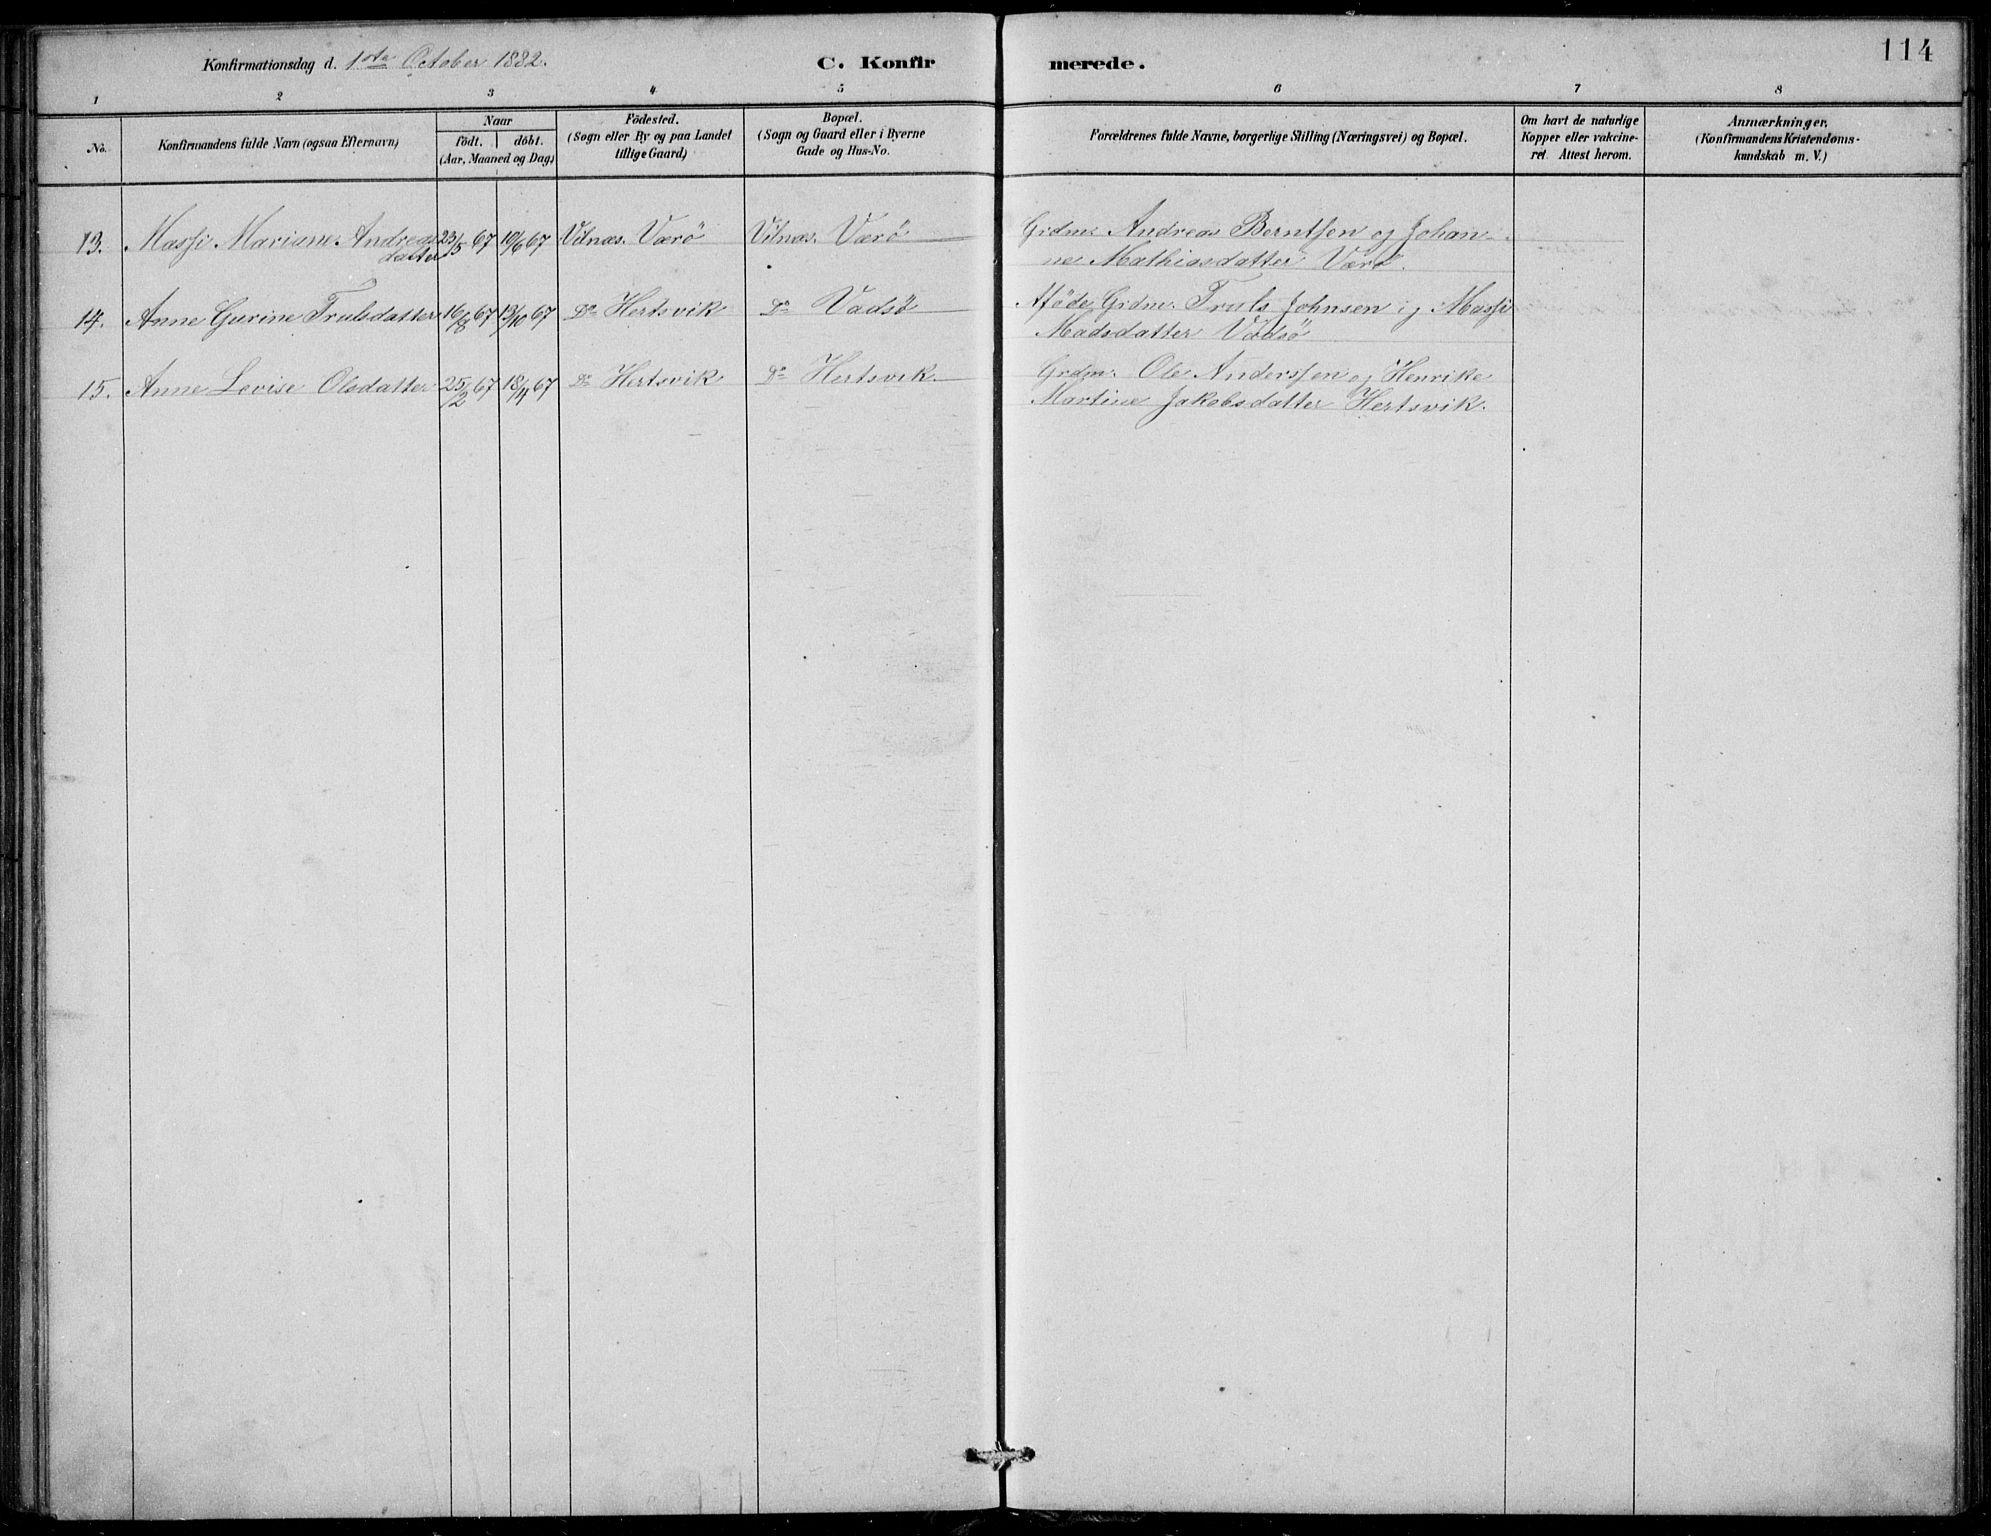 114
Konfirmationsdag d. 1ste October 1882.
C. Konfir merede.
1 2 3 4 5 6 7 8
No.
Konfirmandens fulde Navn (ogsaa Efternavn)
Naar
födt. döbt.
(Aar, Maaned og Dag)
Födested.
(Sogn eller By og paa Landet
tillige Gaard)
Bopæl.
(Sogn og Gaard eller i Byerne
Gade og Hus-No.
Forældrenes fulde Navne, borgerlige Stilling (Næringsvei) og Bopæl.
Om havt de naturlige
Kopper eller vakcine-
ret. Attest herom.
Anmærkninger,
(Konfirmandens Kristendoms-
kundskab m. V.)
13. Massi Mariane Andreas 23/5 67 10/6 67 Vilnæs. Værö Vilnæs. Værö Grdm. Andreas Berntsen og Johan-
datter ne Mathiasdatter Værö.
14. Anne Gurine Trulsdatter 16/8 67 13/10 67 Do Hertsvik Do Vadsö Afdöde Grdm. Truls Johnsen og Massi
Madsdatter Vadsö
15. Anne Lovise Olsdatter 25/2 67 18/4 67 Do Hertsvik Do Hertsvik. Grdm. Ole Anderssen og Henrike
Martine Jakobsdatter Hertsvik.